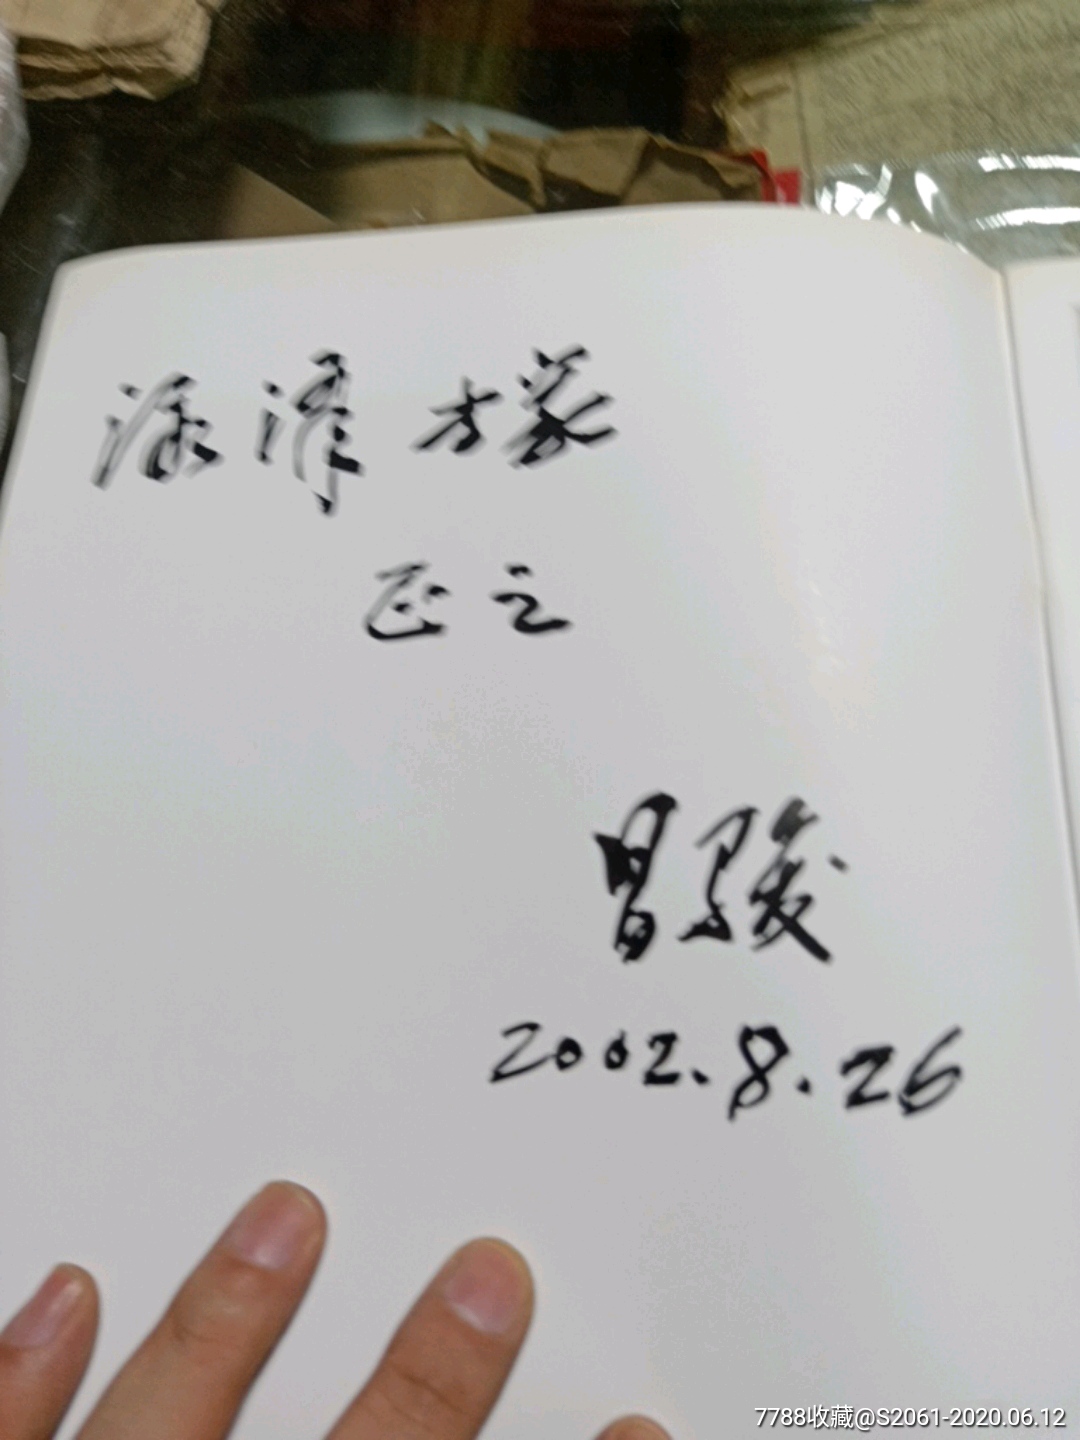 正之
冒骏
2002.8.26
7788收藏@S2061-2020.06.12